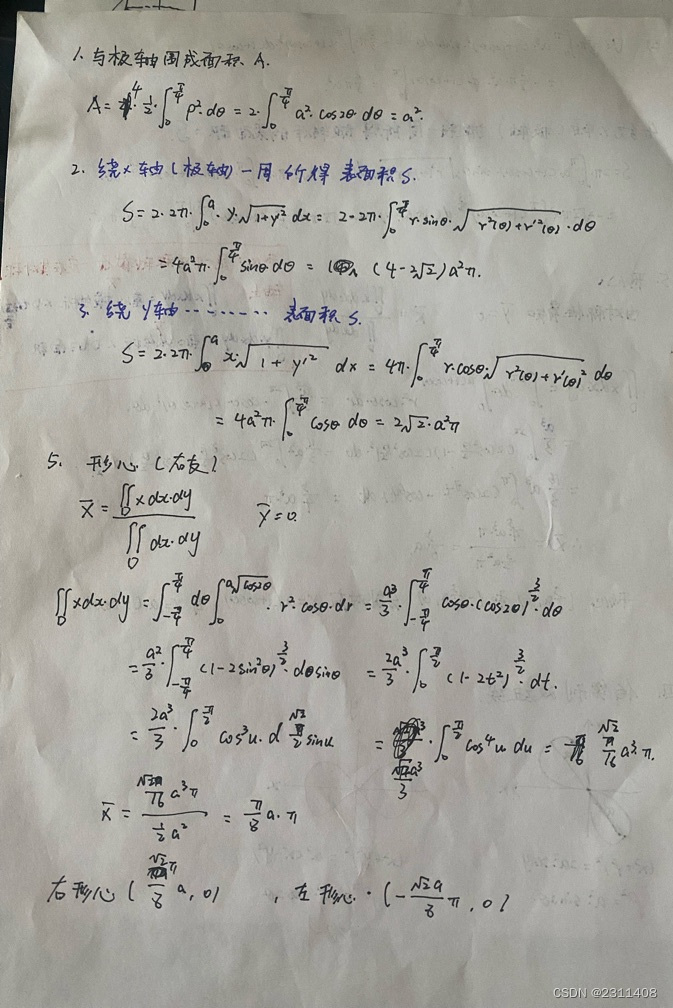 1. 与极轴围成面积 A.
A = 4·½·∫₀^{π/4} ρ²·dθ = 2·∫₀^{π/4} a²·cos2θ dθ = a².
2. 绕x轴(极轴)一周所得表面积S.
S = 2·2π·∫₀^a y·√(1+y'²) dx = 2·2π·∫₀^{π/4} r·sinθ·√(r²(θ)+r'²(θ))·dθ
= 4a²π·∫₀^{π/4} sinθ dθ = (4-2√2)a²π.
3. 绕y轴········· 表面积S.
S = 2·2π·∫₀^a x·√(1+y'²) dx = 4π·∫₀^{π/4} r·cosθ·√(r²(θ)+r'(θ)²) dθ
= 4a²π·∫₀^{π/4} cosθ dθ = 2√2·a²π
5. 形心(右支).
x̄ = ∬_D x dx·dy / ∬_D dx·dy ȳ=0.
∬_D x dx·dy = ∫_{-π/4}^{π/4} dθ ∫₀^{a√cos2θ}·r²·cosθ·dr = a³/3·∫_{-π/4}^{π/4} cosθ·(cos2θ)^{3/2}·dθ
= a²/3·∫_{-π/4}^{π/4} (1-2sin²θ)^{3/2}·dθsinθ = 2a³/3·∫₀^{π/2} (1-2t²)^{3/2}·dt.
= 2a³/3·∫₀^{π/2} cos³u·d √2/2 sinu = √2a³/3·∫₀^{π/2} cos⁴u du = √2/16 a³π.
x̄ = √2/16 a³π / ½a² = π/8 a·π
右形心(√2π/8 a, 0) , 左形心·(-√2a/8 π, 0)
CSDN @2311408